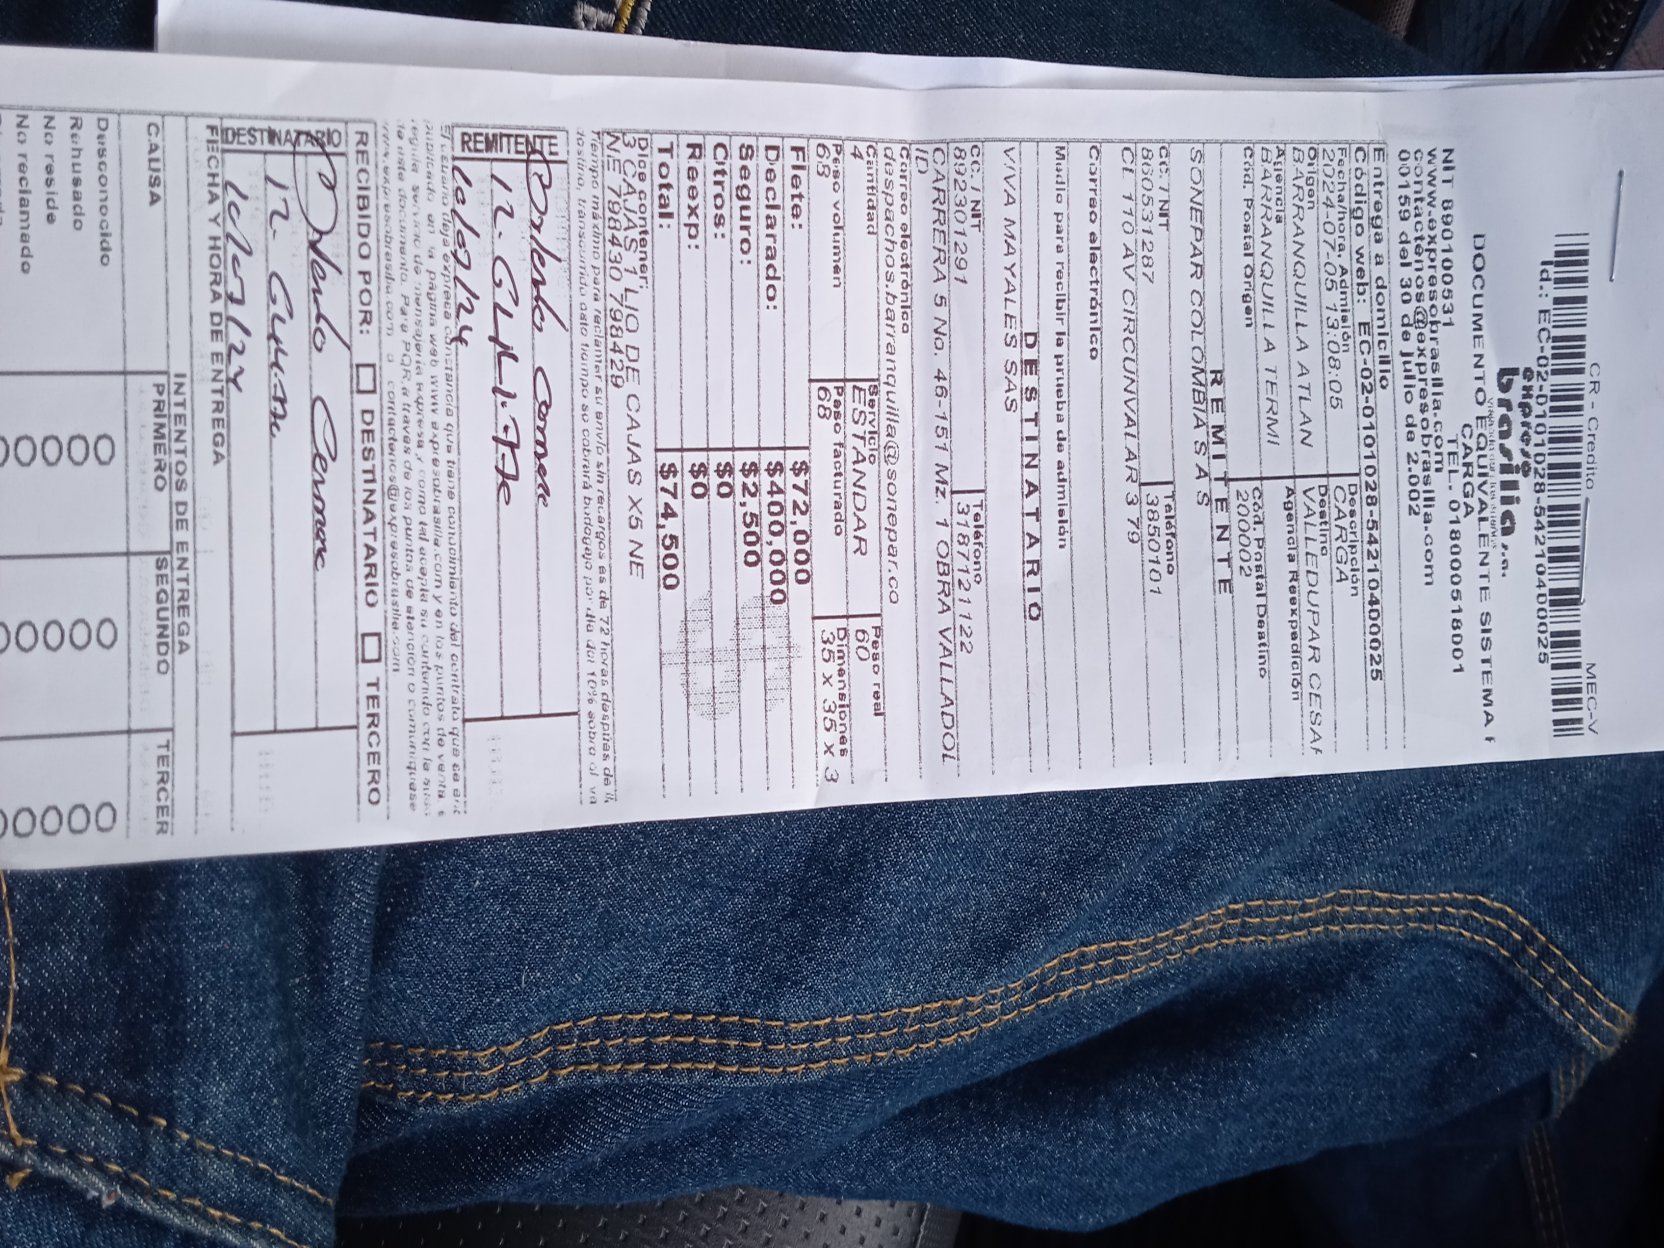 CR - Credito
MEC-V
Id.: EC-02-0101028-54210400025
expreso
brasilia s.a.
DOCUMENTO EQUIVALENTE SISTEMA
CARGA
NIT 890100531 TEL. 018000518001
www.expresobrasilia.com
contáctenos@expresobrasilia.com
00159 del 30 de julio de 2.002
Entrega a domicilio
Código web: EC-02-0101028-542104000025
Fecha/hora, Admisión Descripción
2024-07-05 13:08:05 CARGA
Origen Destino
BARRANQUILLA ATLAN VALLEDUPAR CESAR
Agencia Agencia Reexpedición
BARRANQUILLA TERMI
Cód. Postal Origen Cód. Postal Destino
200002
REMITENTE
SONEPAR COLOMBIA S A S
CC. / NIT Teléfono
860531287 3850101
CL 110 AV CIRCUNVALAR 3 79
Correo electrónico
Medio para recibir la prueba de admisión
DESTINATARIO
VIVA MAYALES SAS
CC. / NIT Teléfono
892301291 3187121122
CARRERA 5 No. 46-151 Mz. 1 OBRA VALLADOL
ID
Correo electrónico
despachos.barranquilla@sonepar.co
Cantidad Servicio Peso real
4 ESTÁNDAR 60
Peso volumen Peso facturado Dimensiones
68 68 35 x 35 x 3
Flete: $72,000
Declarado: $400,000
Seguro: $2,500
Otros: $0
Reexp: $0
Total: $74,500
Dice contener:
3 CAJAS 1 LIO DE CAJAS X5 NE
NE 798430 798429
Tiempo máximo para reclamar su envío sin recargos es de 72 horas después de ll
destino, transcurrido este tiempo se cobrará bodegaje por día del 10% sobre el va
REMITENTE
10/07/24
El usuario deja expresa constancia que tiene conocimiento del contrato que se en
publicado en la página web www.expresobrasilia.com y en los puntos de venta
regula servicio de mensajería expresa y como tal acepta su contenido con la
de este documento. Para PQR a traves de los puntos de atención o comuníquese
www.expresobrasilia.com o contactenos@expresobrasilia.com
RECIBIDO POR: DESTINATARIO TERCERO
DESTINATARIO
10/07/24
FECHA Y HORA DE ENTREGA
INTENTOS DE ENTREGA
CAUSA PRIMERO SEGUNDO TERCER
Desconocido
Rehusado
No reside
No reclamado